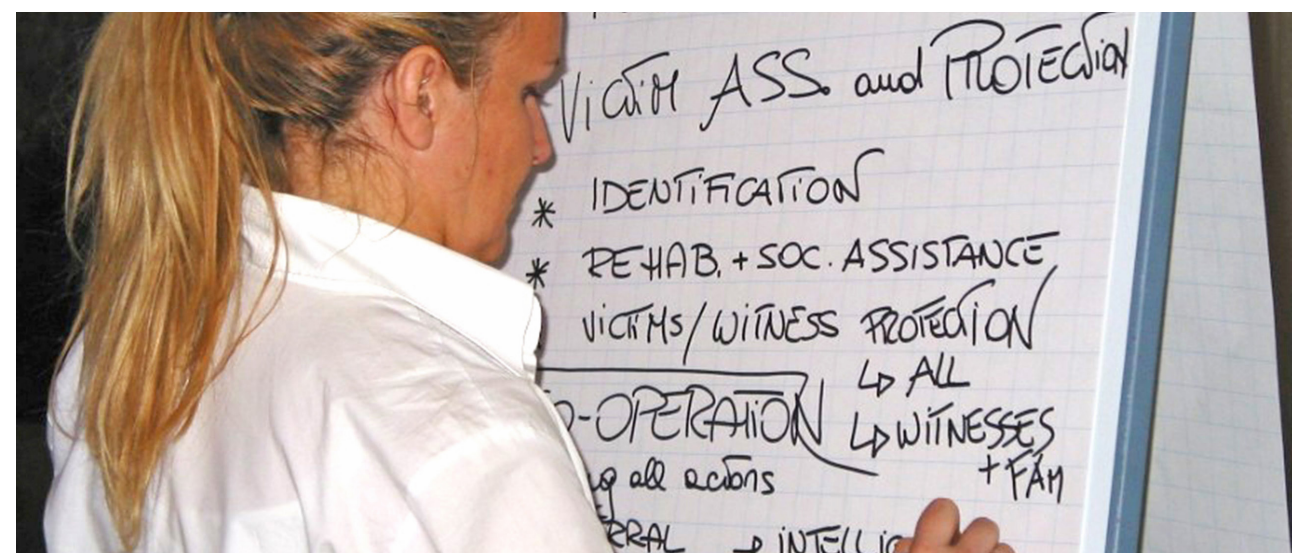 Victim ASS. and PROTECTION
* IDENTIFICATION
* REHAB. + SOC. ASSISTANCE
VICTIMS/WITNESS PROTECTION
↳ ALL
↳ WITNESSES
+ FAM
O-OPERATION
all actors
RRAL → INTELLIG